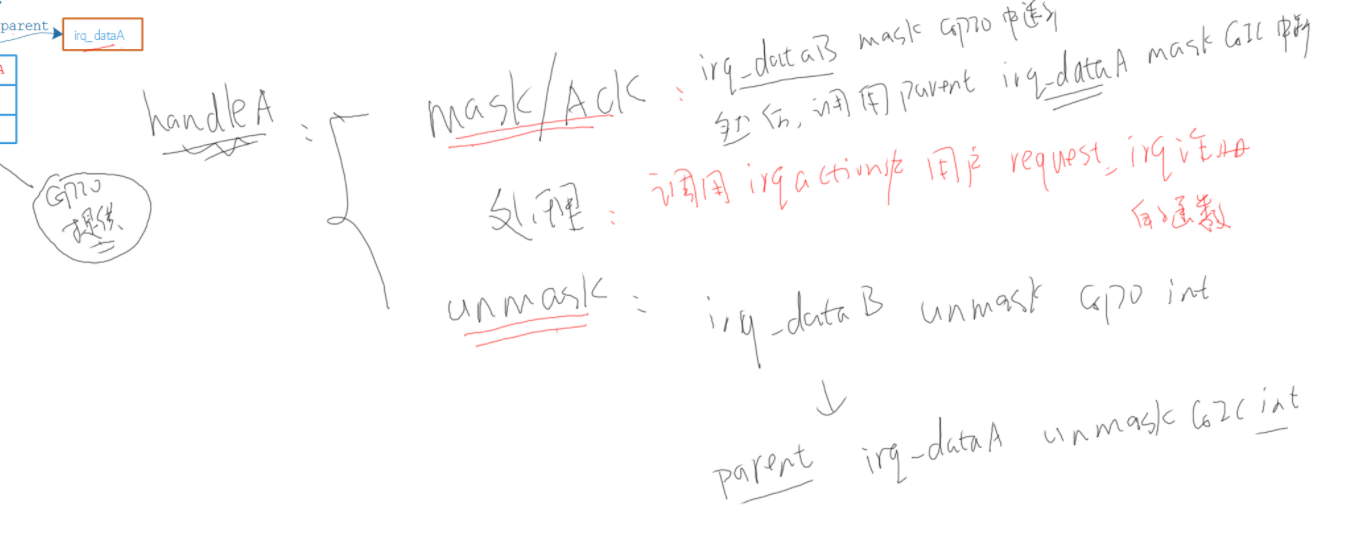 parent
irq_dataA
A
GPIO
提供
handleA :
mask/Ack : irq_dataB mask GPIO 中断
包后, 调用 parent irq_dataA mask GIC 中断
处理 : 调用 irqaction 用户 request_irq 注册
的函数
unmask : irq_dataB unmask GPIO int
↓
parent irq_dataA unmask GIC int